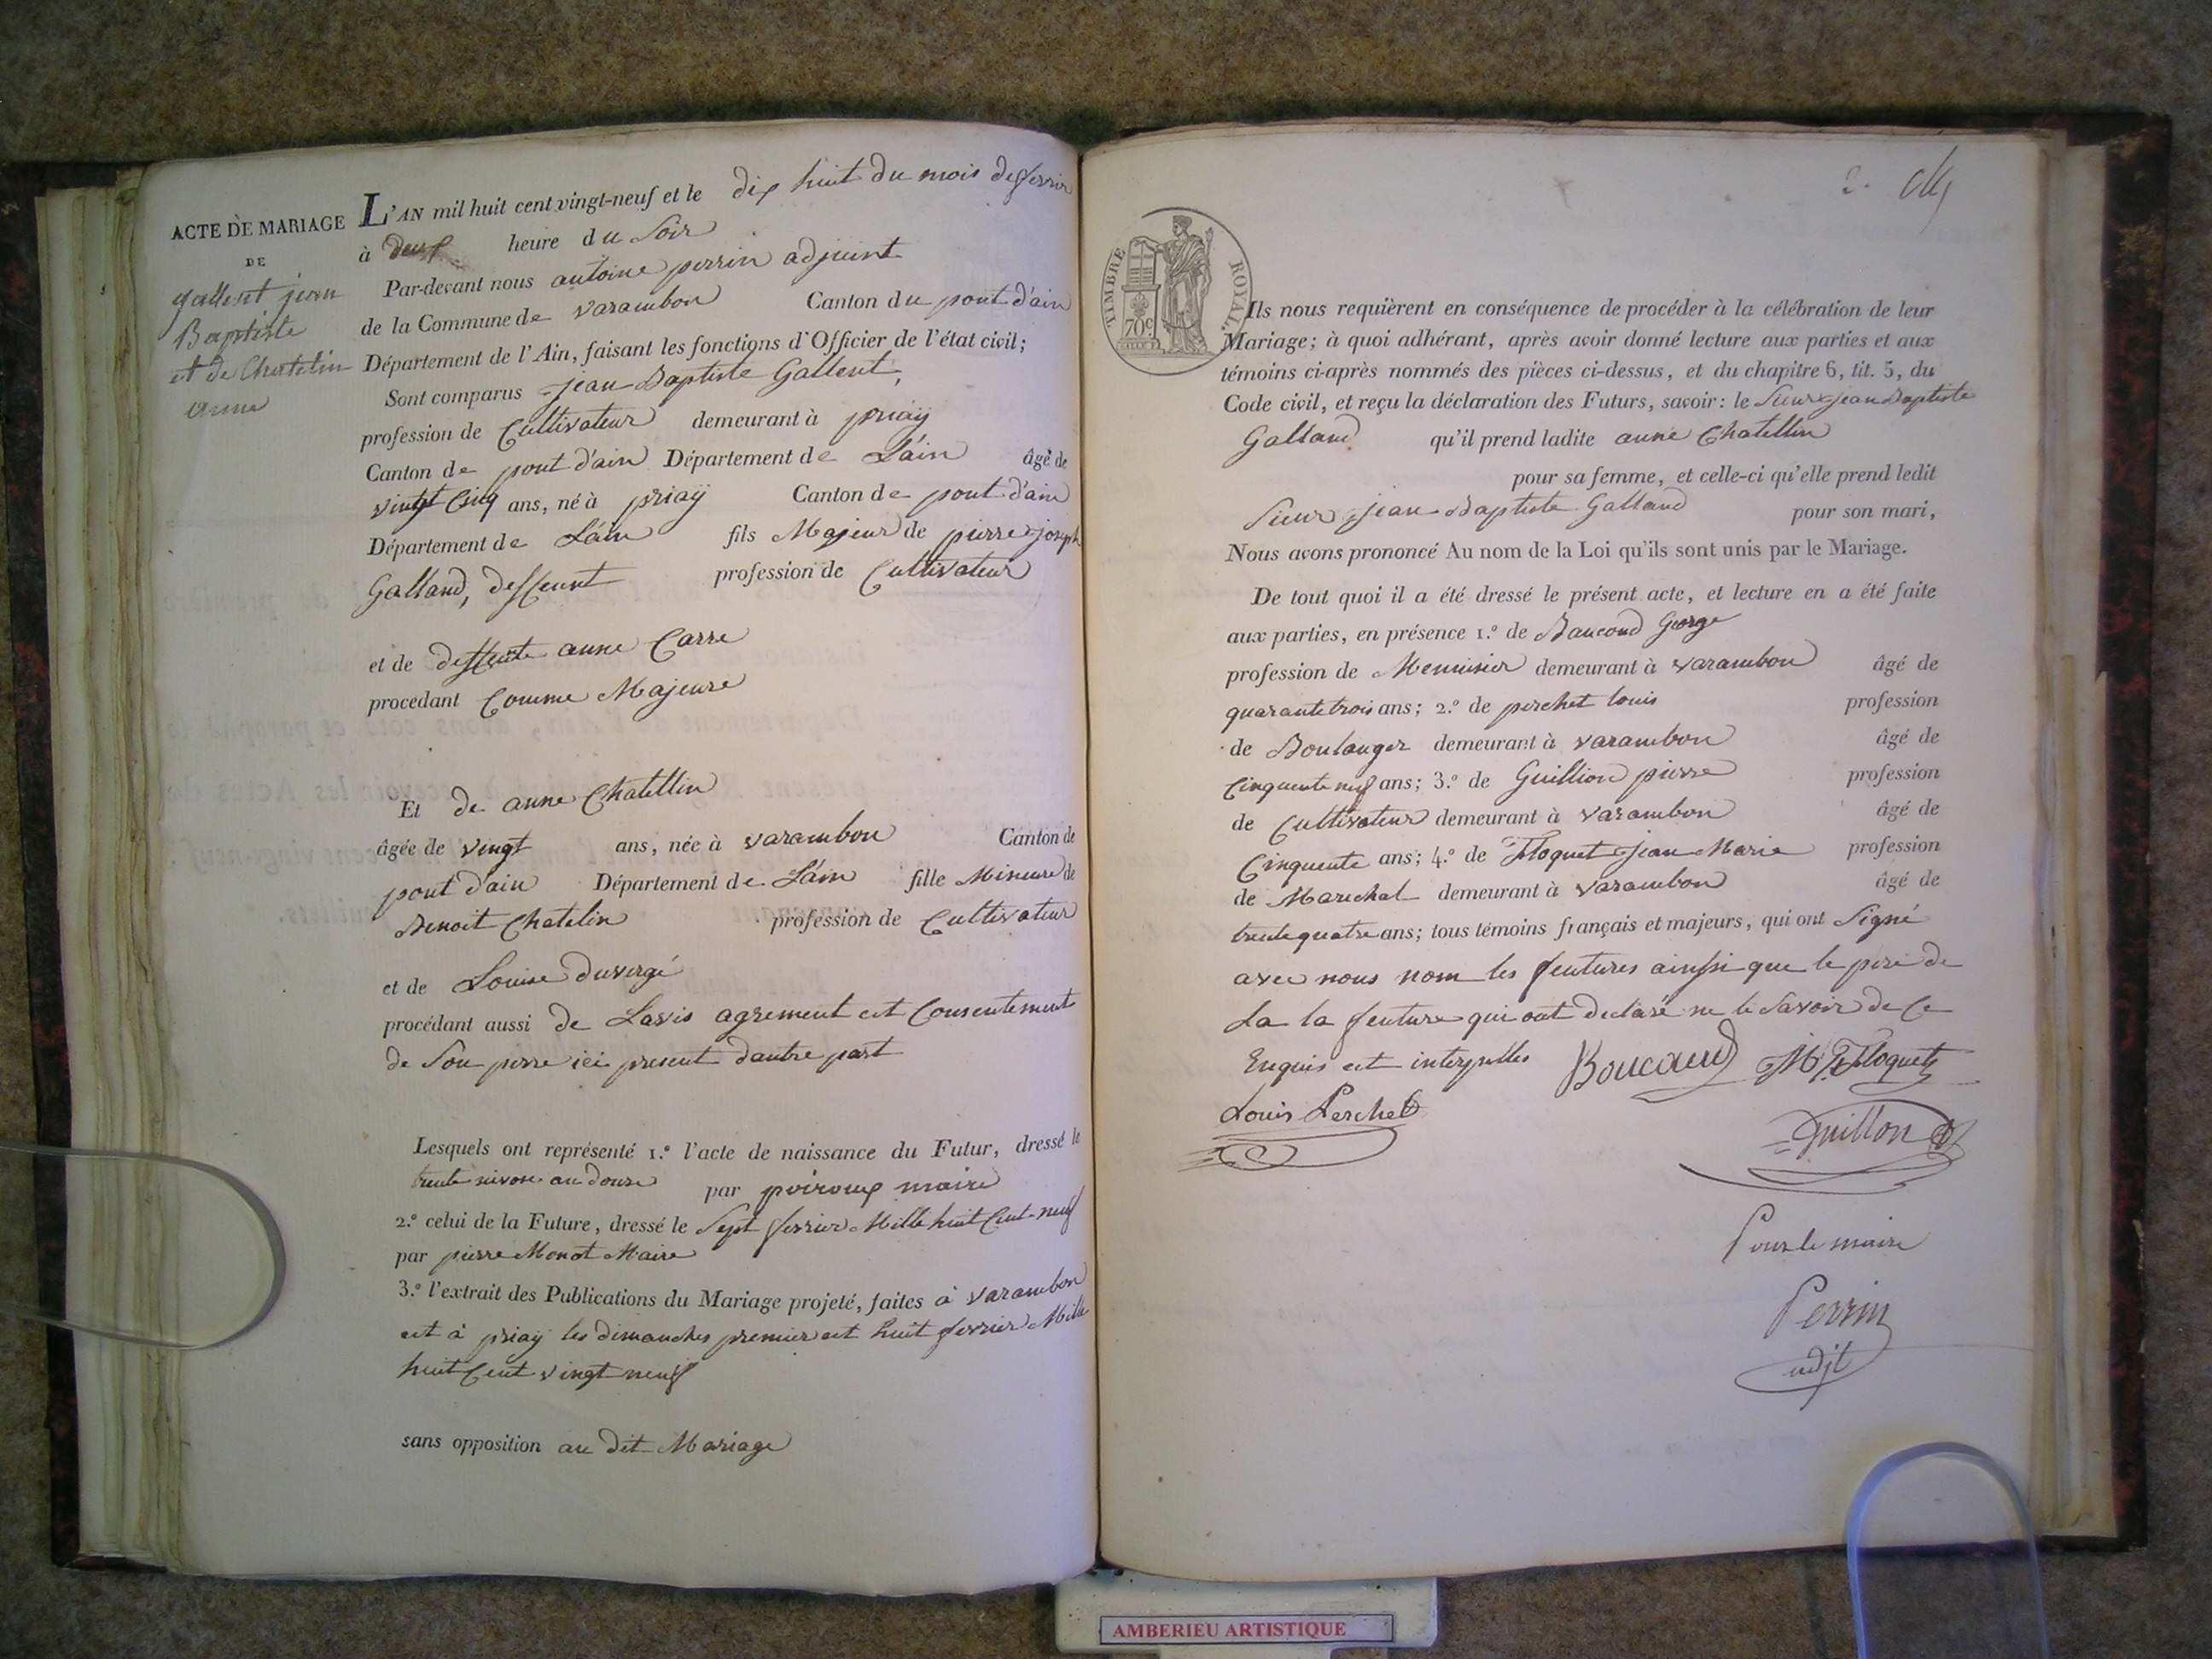 ACTE DE MARIAGE
DE
gallent jean
Baptiste
et de Chatelin
anne
L'AN mil huit cent vingt-neuf et le dix huit du mois de fevrier
à deux heure du Soir
Par-devant nous antoine perrin adjoint
de la Commune de varambon Canton du pont d'ain
Département de l'Ain, faisant les fonctions d'Officier de l'état civil;
Sont comparus jean Baptiste Gallent,
profession de Cultivateur demeurant à priaÿ
Canton de pont d'ain Département de L'ain âgé de
vingt Cinq ans, né à priaÿ Canton de pont d'ain
Département de L'ain fils Majeur de pierre joseph
Galland, deffeunt profession de Cultivateur
et de deffeute anne Carre
procédant Comme Majeure
Et de anne Chatellin
âgée de vingt ans, née à varambon Canton de
pont d'ain Département de L'ain fille Mineure de
Benoit Chatelin profession de Cultivateur
et de Louise Duvergé
procédant aussi de Lavis agrement et Consentement
de Son perre ici present dautre part
Lesquels ont représenté 1.º l'acte de naissance du Futur, dressé le
trente nivose an douze par poiroux maire
2.º celui de la Future, dressé le Sept fevrier Mille huit Cent neuf
par pierre Monot Maire
3.º l'extrait des Publications du Mariage projeté, faites à varambon
et à priaÿ les dimanches premier et huit fevrier Mille
huit Cent vingt neuf
sans opposition au dit Mariage
2.
TIMBRE ROYAL.
70 c
Ils nous requièrent en conséquence de procéder à la célébration de leur
Mariage; à quoi adhérant, après avoir donné lecture aux parties et aux
témoins ci-après nommés des pièces ci-dessus, et du chapitre 6, tit. 5, du
Code civil, et reçu la déclaration des Futurs, savoir: le Sieur jean Baptiste
Galland qu'il prend ladite anne Chatellin
pour sa femme, et celle-ci qu'elle prend ledit
Sieur jean Baptiste Galland pour son mari,
Nous avons prononcé Au nom de la Loi qu'ils sont unis par le Mariage.
De tout quoi il a été dressé le présent acte, et lecture en a été faite
aux parties, en présence 1.º de Baucond George
profession de Menuisier demeurant à varambon âgé de
quarante trois ans; 2.º de perchet louis profession
de Boulanger demeurant à varambon âgé de
Cinquente neuf ans; 3.º de Guillion pierre profession
de Cultivateur demeurant à varambon âgé de
Cinquente ans; 4.º de Floquet jean Marie profession
de Marechal demeurant à varambon âgé de
trente quatre ans; tous témoins français et majeurs, qui ont Signé
avec nous nom les feutures ainsi que le pere de
La la feuture qui ont declaré ne le Savoir de Ce
Enquis et interpelles Boucaud M Floquet
Louis Perchet
Guillon
Pour le maire
Perrin
adjt
AMBERIEU ARTISTIQUE